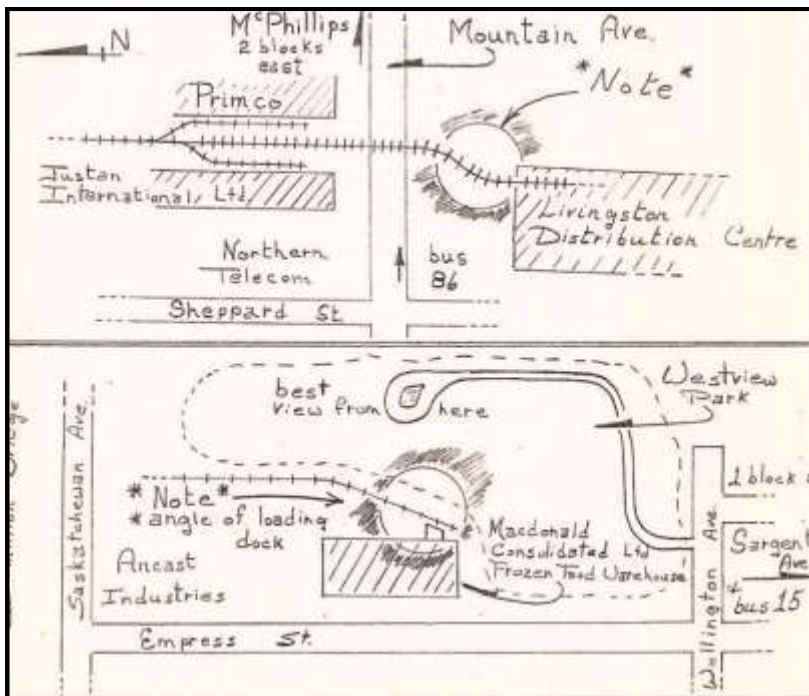 N
McPhillips
2 blocks
east
Mountain Ave.
*Note*
Primco
Justan
International, Ltd.
Livingston
Distribution Centre
Northern
Telecom
bus
86
Sheppard St.
Saskatchewan Ave.
best
view from here
Westview
Park
*Note*
*angle of loading
dock
Macdonald
Consolidated Ltd
Frozen Food Warehouse
Ancast
Industries
Empress St.
Wellington Ave.
1 block
Sargent
Ave
bus 15